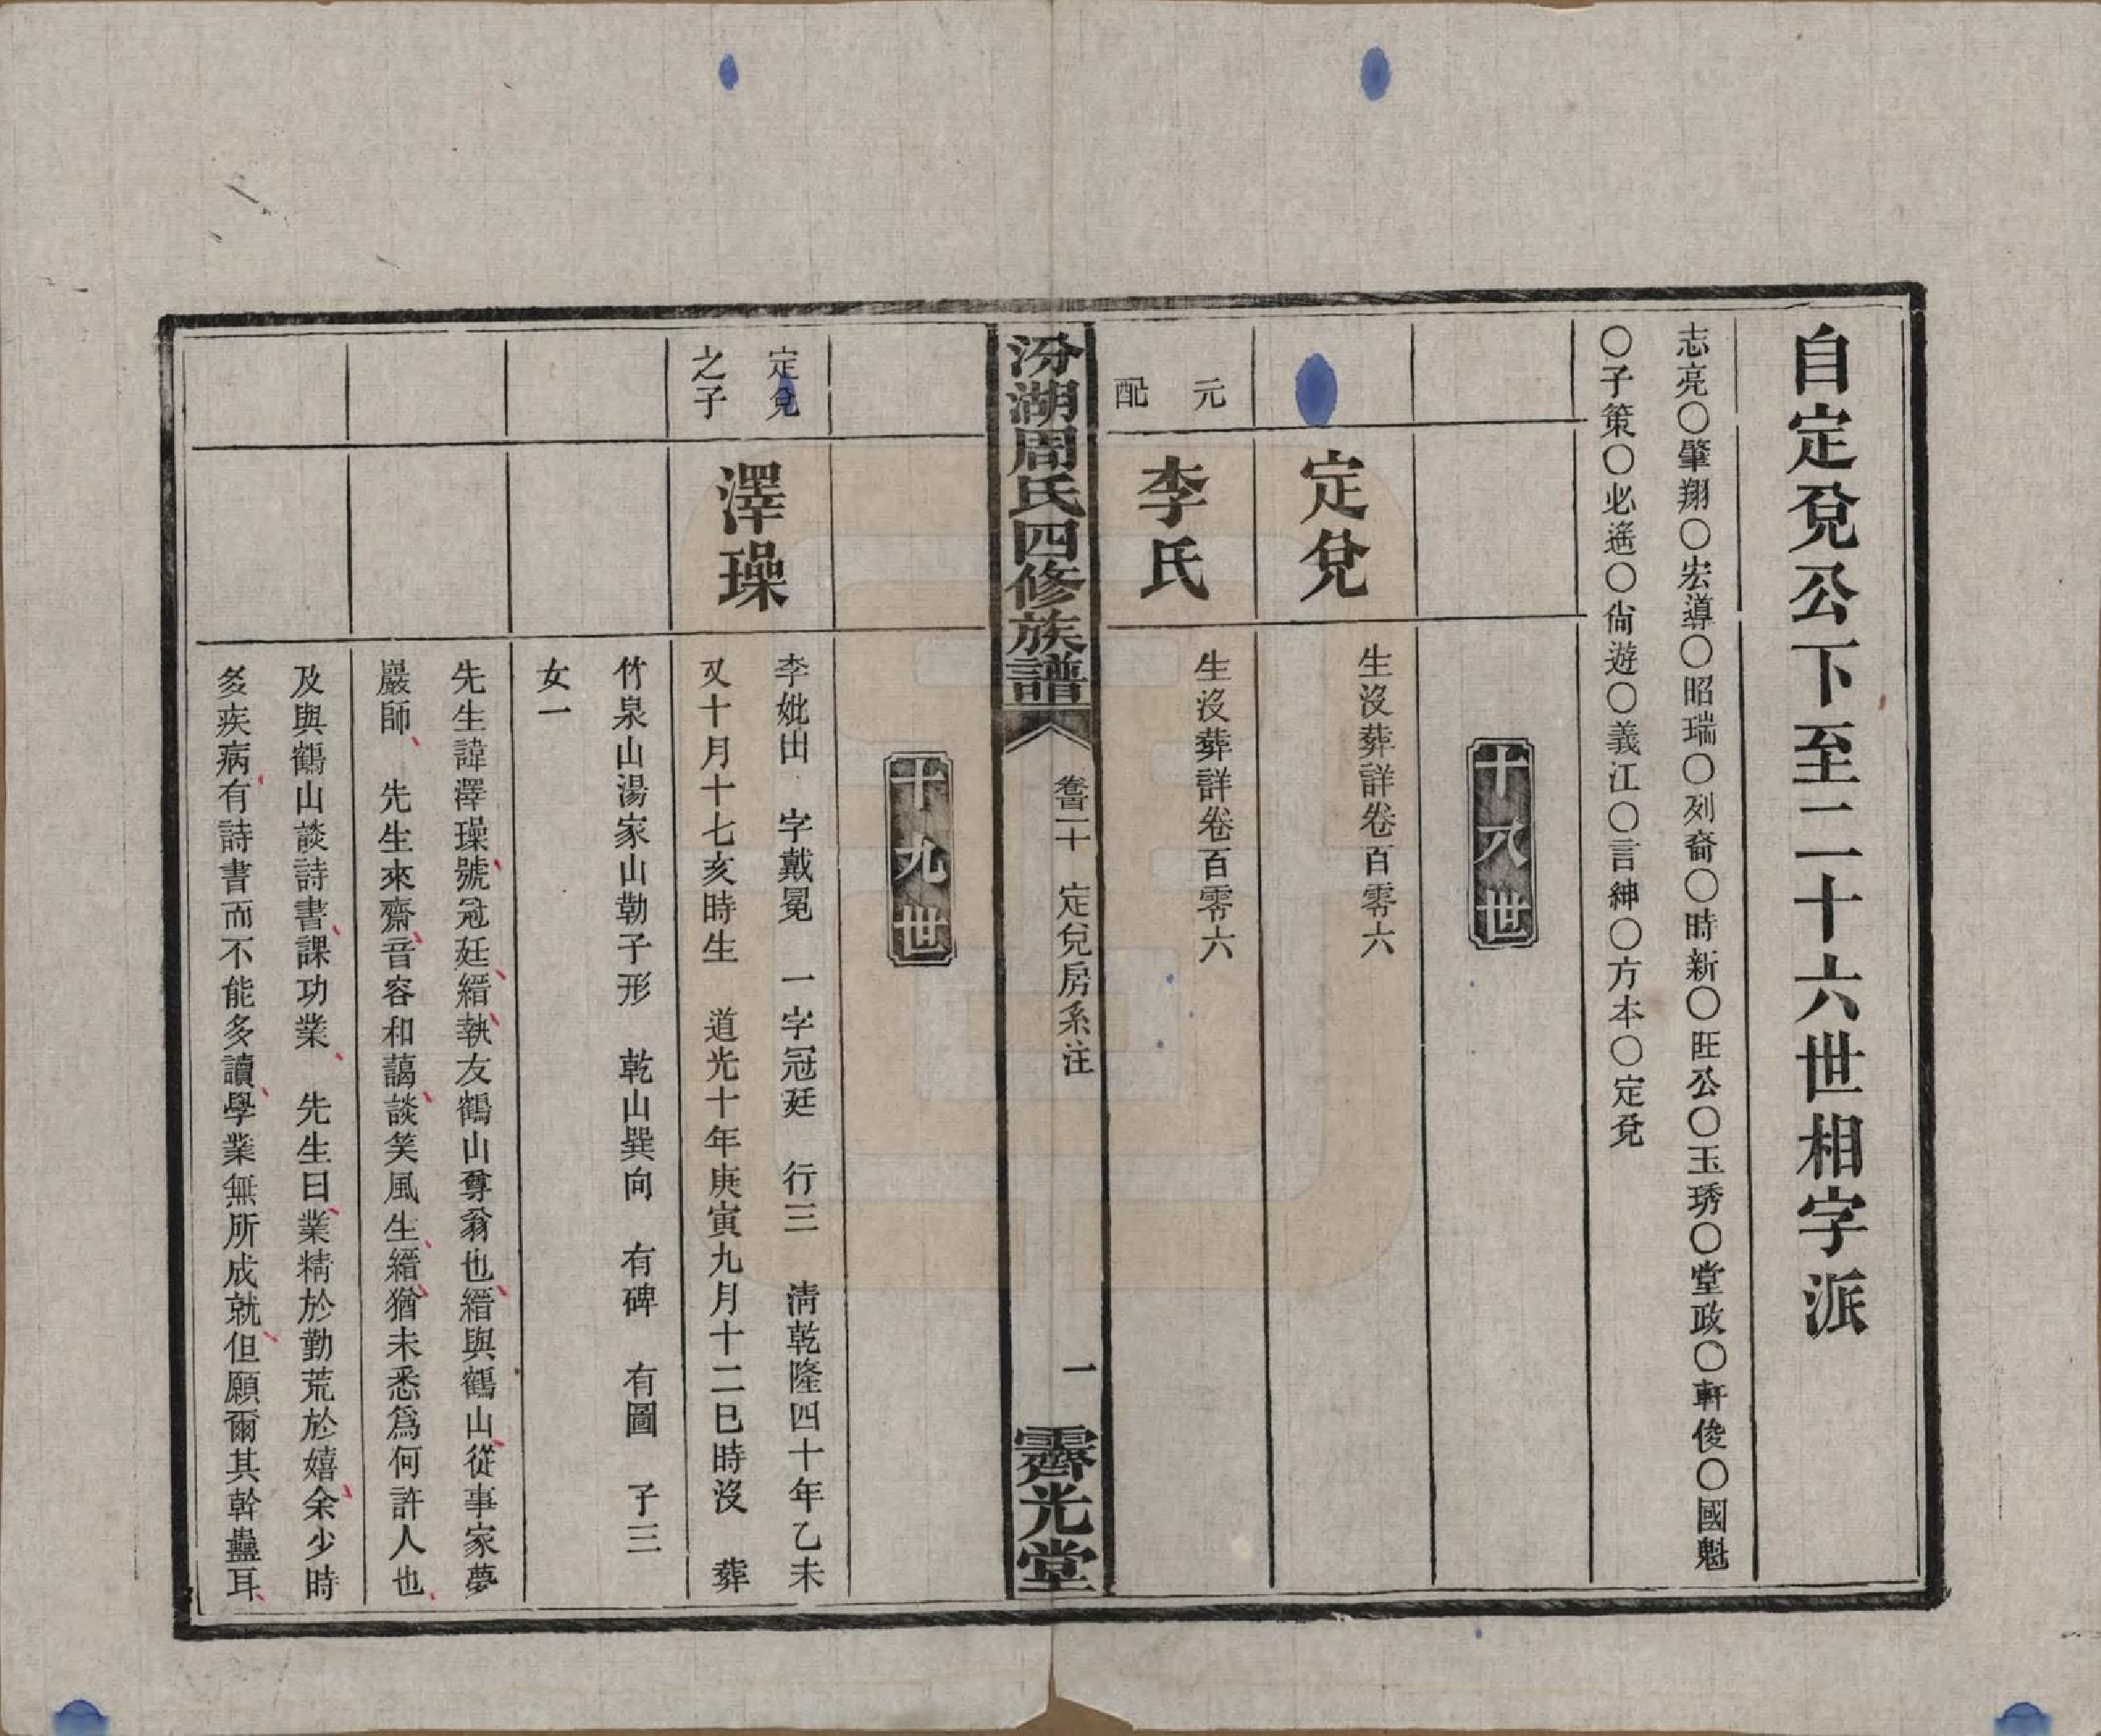 自定兌公下至二十六世相字派
志亮〇肇翔〇宏導〇昭瑞〇列裔〇時新〇旺公〇玉琇〇堂政〇軒俊〇國魁
〇子策〇必遙〇尙遊〇義江〇言紳〇方本〇定兌
十八世
定兌
生沒葬詳卷百零六
元配
李氏
生沒葬詳卷百零六
汾湖周氏四修族譜
卷百二十 定兌房系注
一
霽光堂
十九世
定兌之子
澤璪
李妣出 字戴冕 一字冠廷 行三 淸乾隆四十年乙未
又十月十七亥時生 道光十年庚寅九月十二巳時沒 葬
竹泉山湯家山勒子形 乾山巽向 有碑 有圖 子三
女一
先生諱澤璪號冠廷縉執友鶴山尊翁也縉與鶴山從事家夢
巖師 先生來齋音容和藹談笑風生縉猶未悉爲何許人也
及與鶴山談詩書課功業 先生曰業精於勤荒於嬉余少時
多疾病有詩書而不能多讀學業無所成就但願爾其幹蠱耳